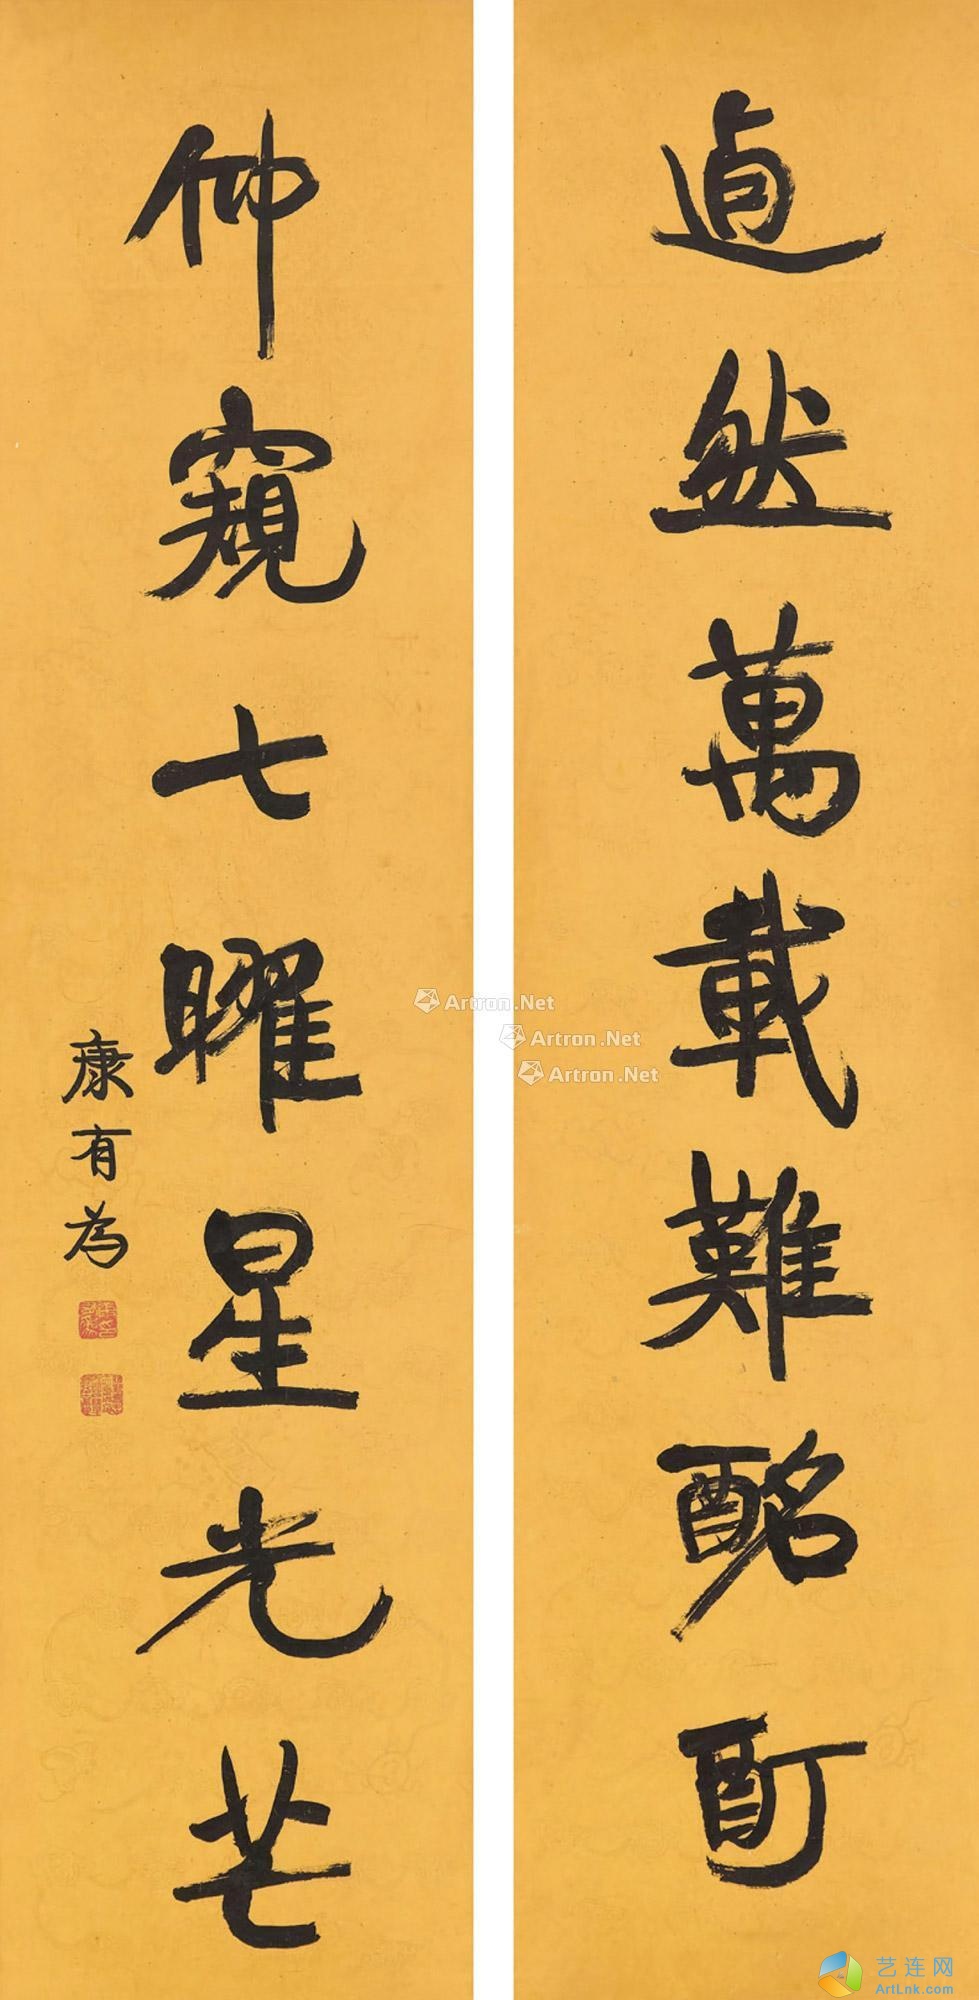 逌然萬載難酩酊
仰窺七曜星光芒
康有為
Artron.Net
Artron.Net
Artron.Net
艺连网
ArtLnk.com